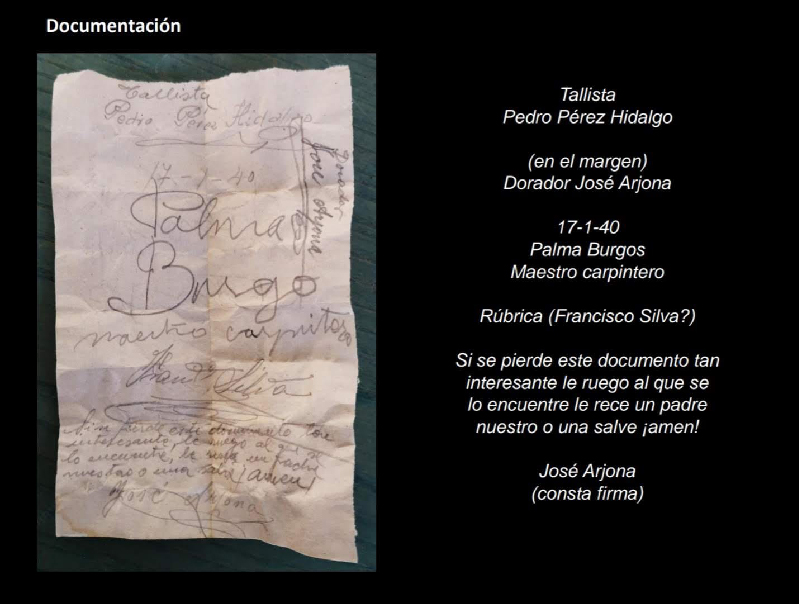 Documentación
Tallista
Pedro Pérez Hidalgo
Dorador
José Arjona
17-1-40
Palma
Burgo
maestro carpintero
Silva
Si se pierde este documento tan
interesante, le ruego al que se
lo encuentre, le rece un padre
nuestro o una salve ¡amen!
José Arjona
Tallista
Pedro Pérez Hidalgo
(en el margen)
Dorador José Arjona
17-1-40
Palma Burgos
Maestro carpintero
Rúbrica (Francisco Silva?)
Si se pierde este documento tan
interesante le ruego al que se
lo encuentre le rece un padre
nuestro o una salve ¡amen!
José Arjona
(consta firma)